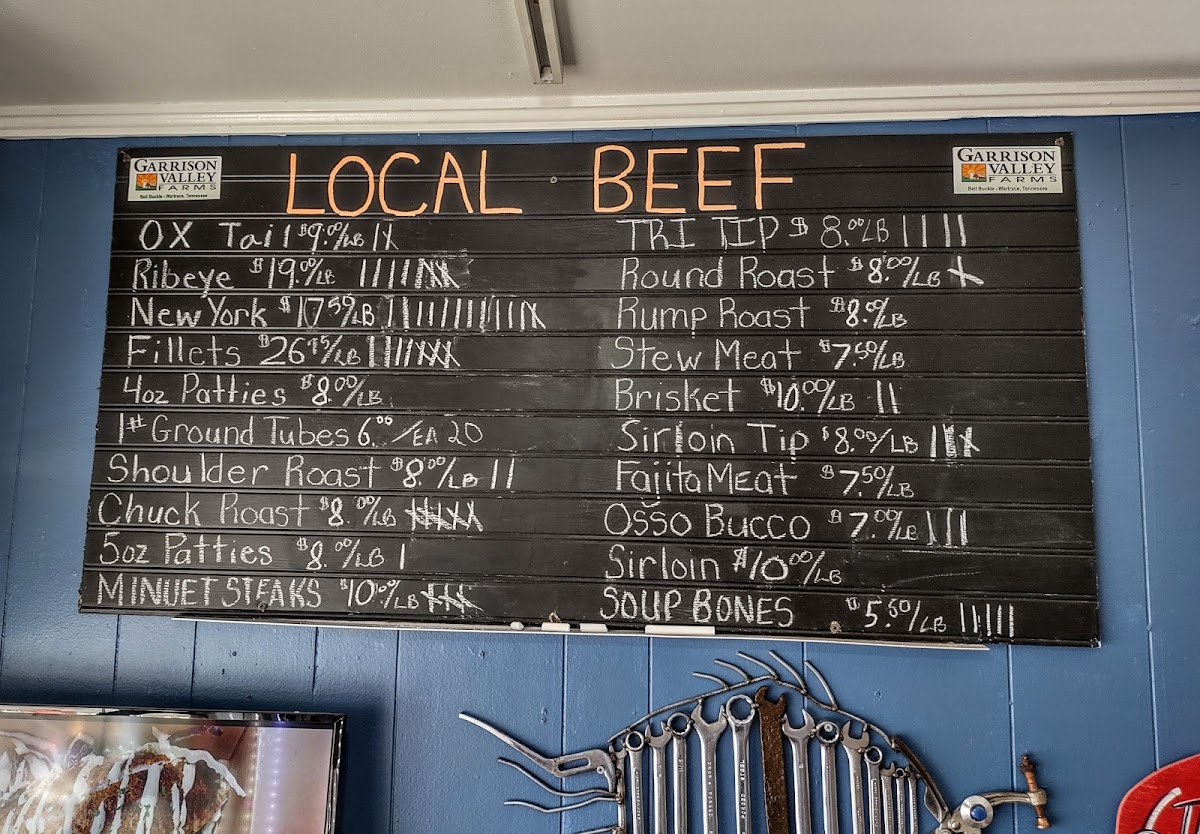 GARRISON
VALLEY
FARMS
Bell Buckle - Wartrace, Tennessee
LOCAL BEEF
GARRISON
VALLEY
FARMS
Bell Buckle - Wartrace, Tennessee
OX Tail $9.00/LB
Ribeye $19.00/LB
New York $17.50/LB
Fillets $26.75/LB
4oz Patties $8.00/LB
1# Ground Tubes 6.00/EA 20
Shoulder Roast $8.00/LB
Chuck Roast $8.00/LB
5oz Patties $8.00/LB
MINUET STEAKS $10.00/LB
TRI TIP $8.00/LB
Round Roast $8.00/LB
Rump Roast $8.00/LB
Stew Meat $7.50/LB
Brisket $10.00/LB
Sirloin Tip $8.00/LB
Fajita Meat $7.50/LB
Osso Bucco $7.00/LB
Sirloin $10.00/LB
SOUP BONES $5.50/LB